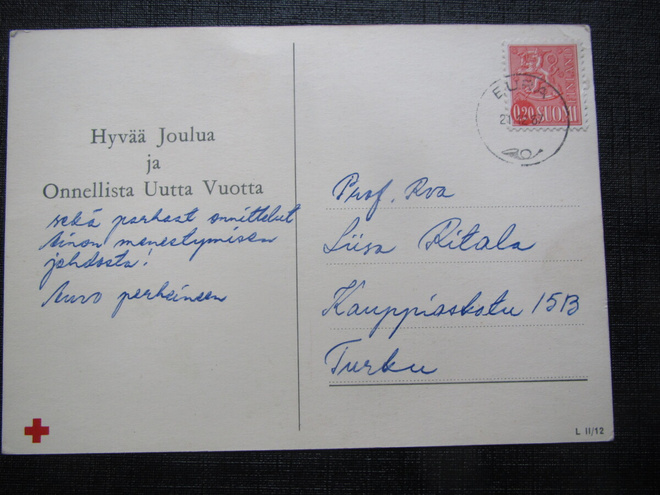 Hyvää Joulua
ja
Onnellista Uutta Vuotta
sekä parhaat onnittelut
menestymisen
johdosta!
perheineen
EURA
0,20 SUOMI
Prof. Rva
Liisa Ritala
Kauppiaskatu 15B
Turku
L II/12